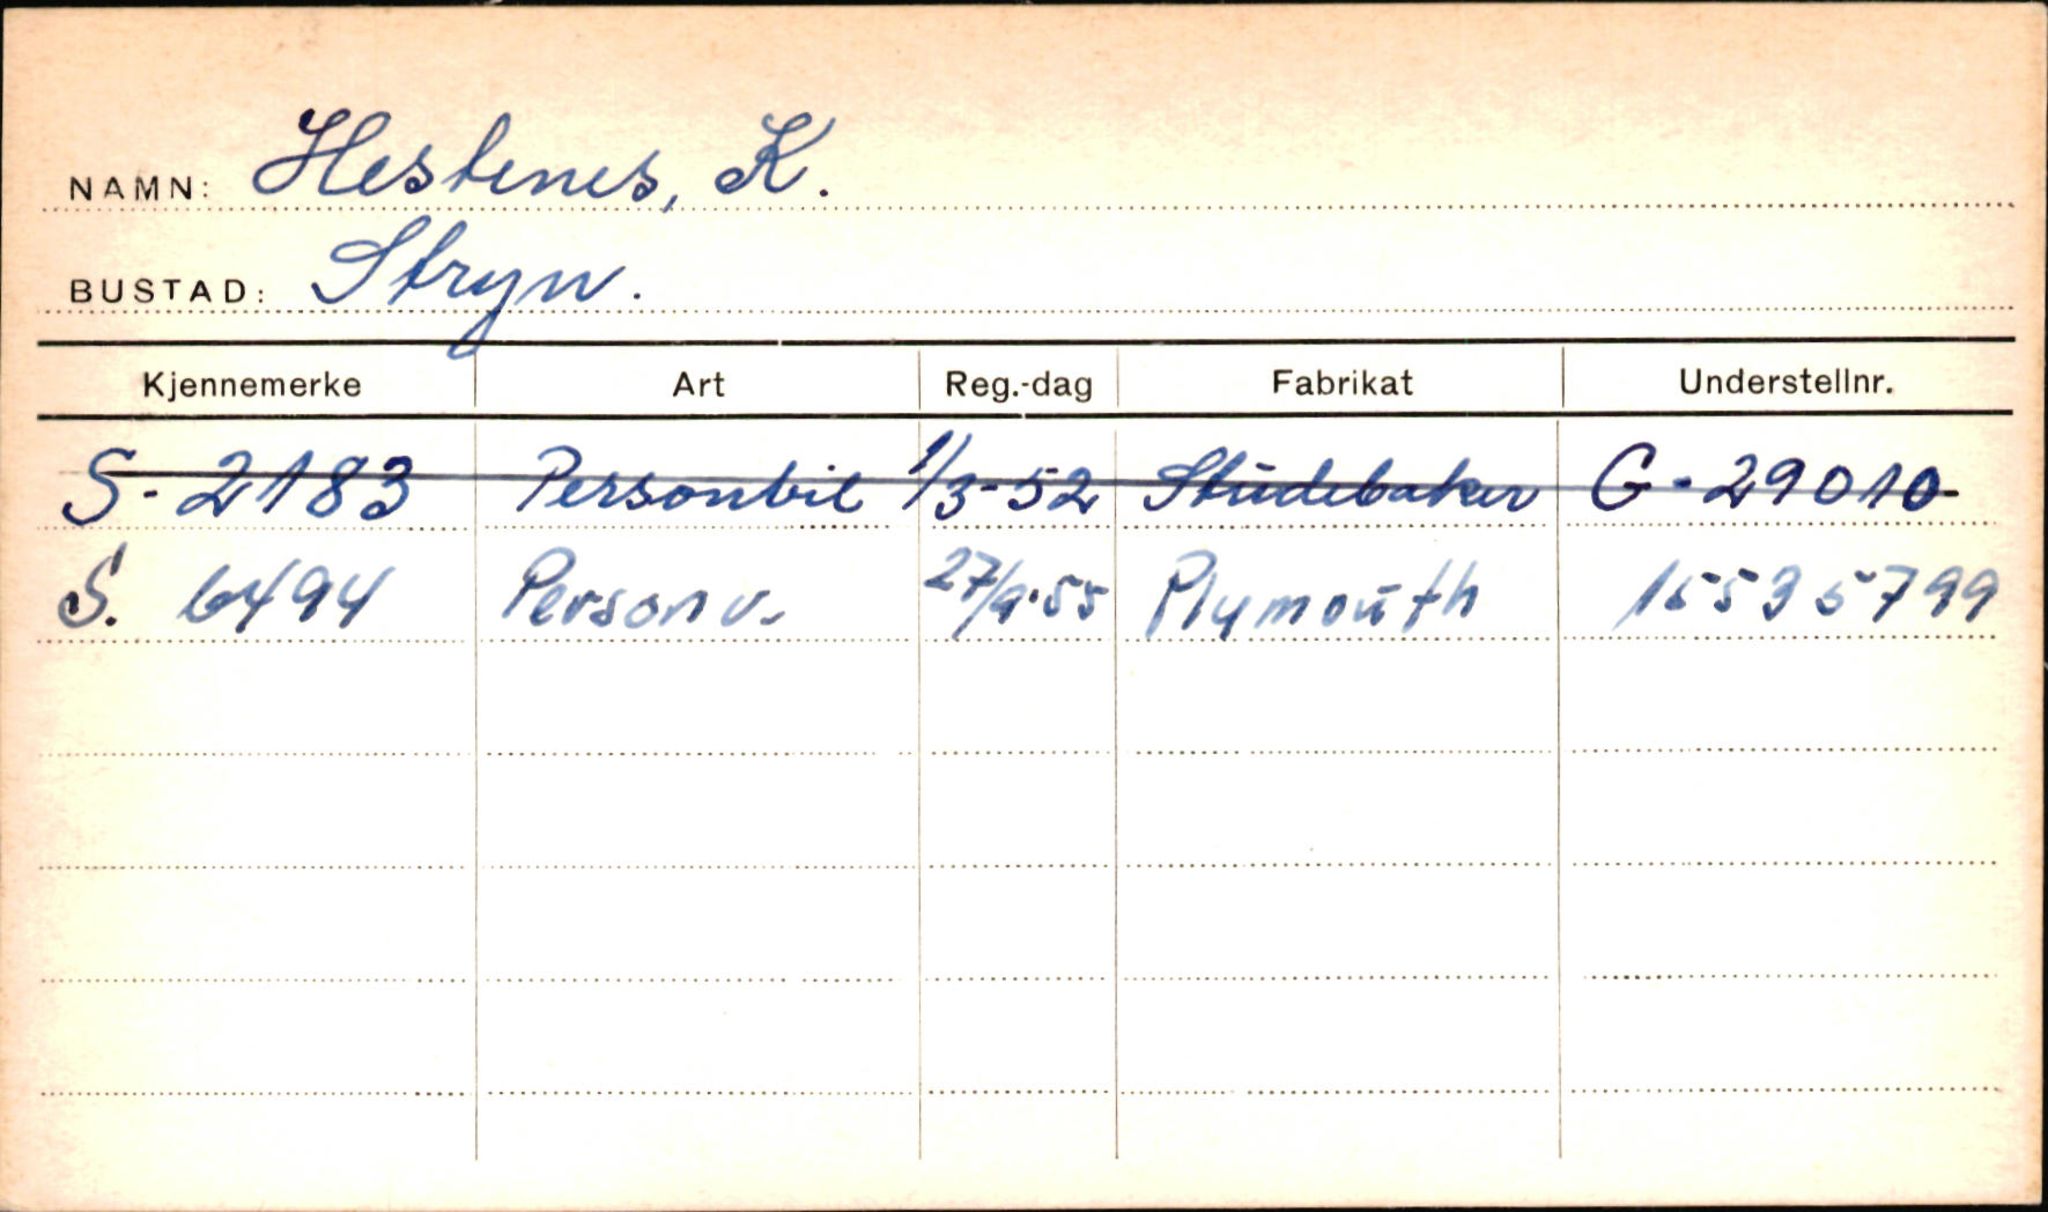 NAMN: Hestenes, K.
BUSTAD: Stryn.
Kjennemerke Art Reg.-dag Fabrikat Understellnr.
S-2183 Personbil 1/3-52 Studebaker G-29010
S. 6494 Personv. 27/9.55 Plymouth 15535799